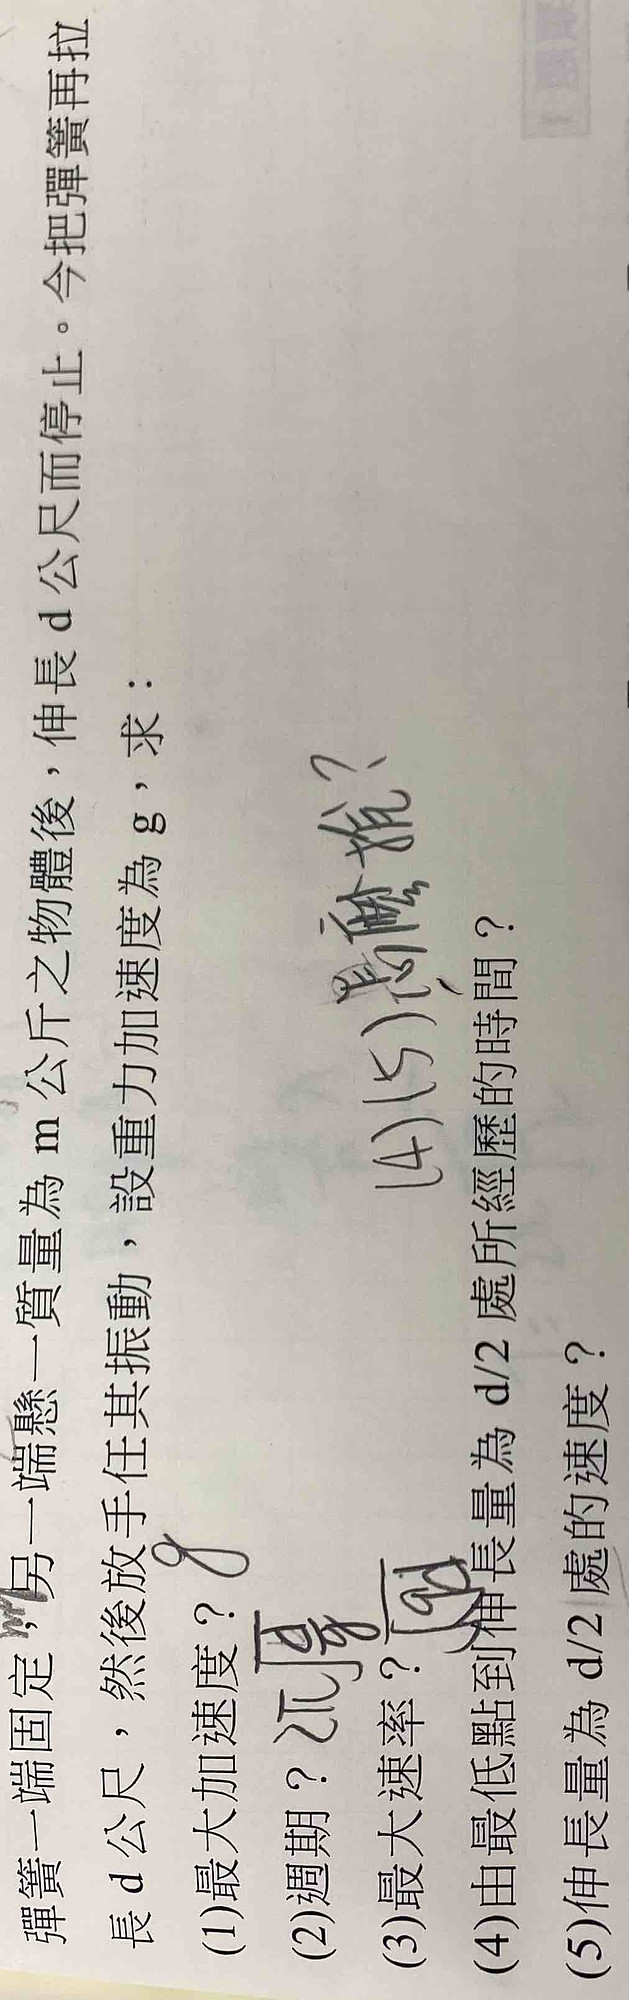 彈簧一端固定，另一端懸一質量為 m 公斤之物體後，伸長 d 公尺而停止。今把彈簧再拉
長 d 公尺，然後放手任其振動，設重力加速度為 g，求：
(1)最大加速度？ g
(2)週期？ 2π√d/g
(3)最大速率？ √gd
(4)(5)怎麼求？
(4)由最低點到伸長量為 d/2 處所經歷的時間？
(5)伸長量為 d/2 處的速度？